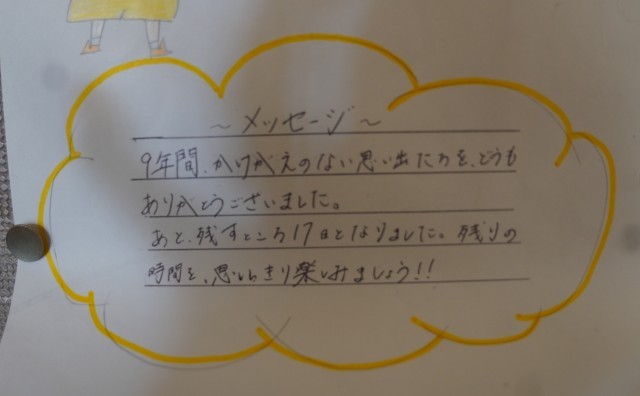 ～メッセージ～
9年間、かけがえのない思い出たちを、どうも
ありがとうございました。
あと、残すところ17日となりました。残りの
時間を、思いっきり楽しみましょう!!